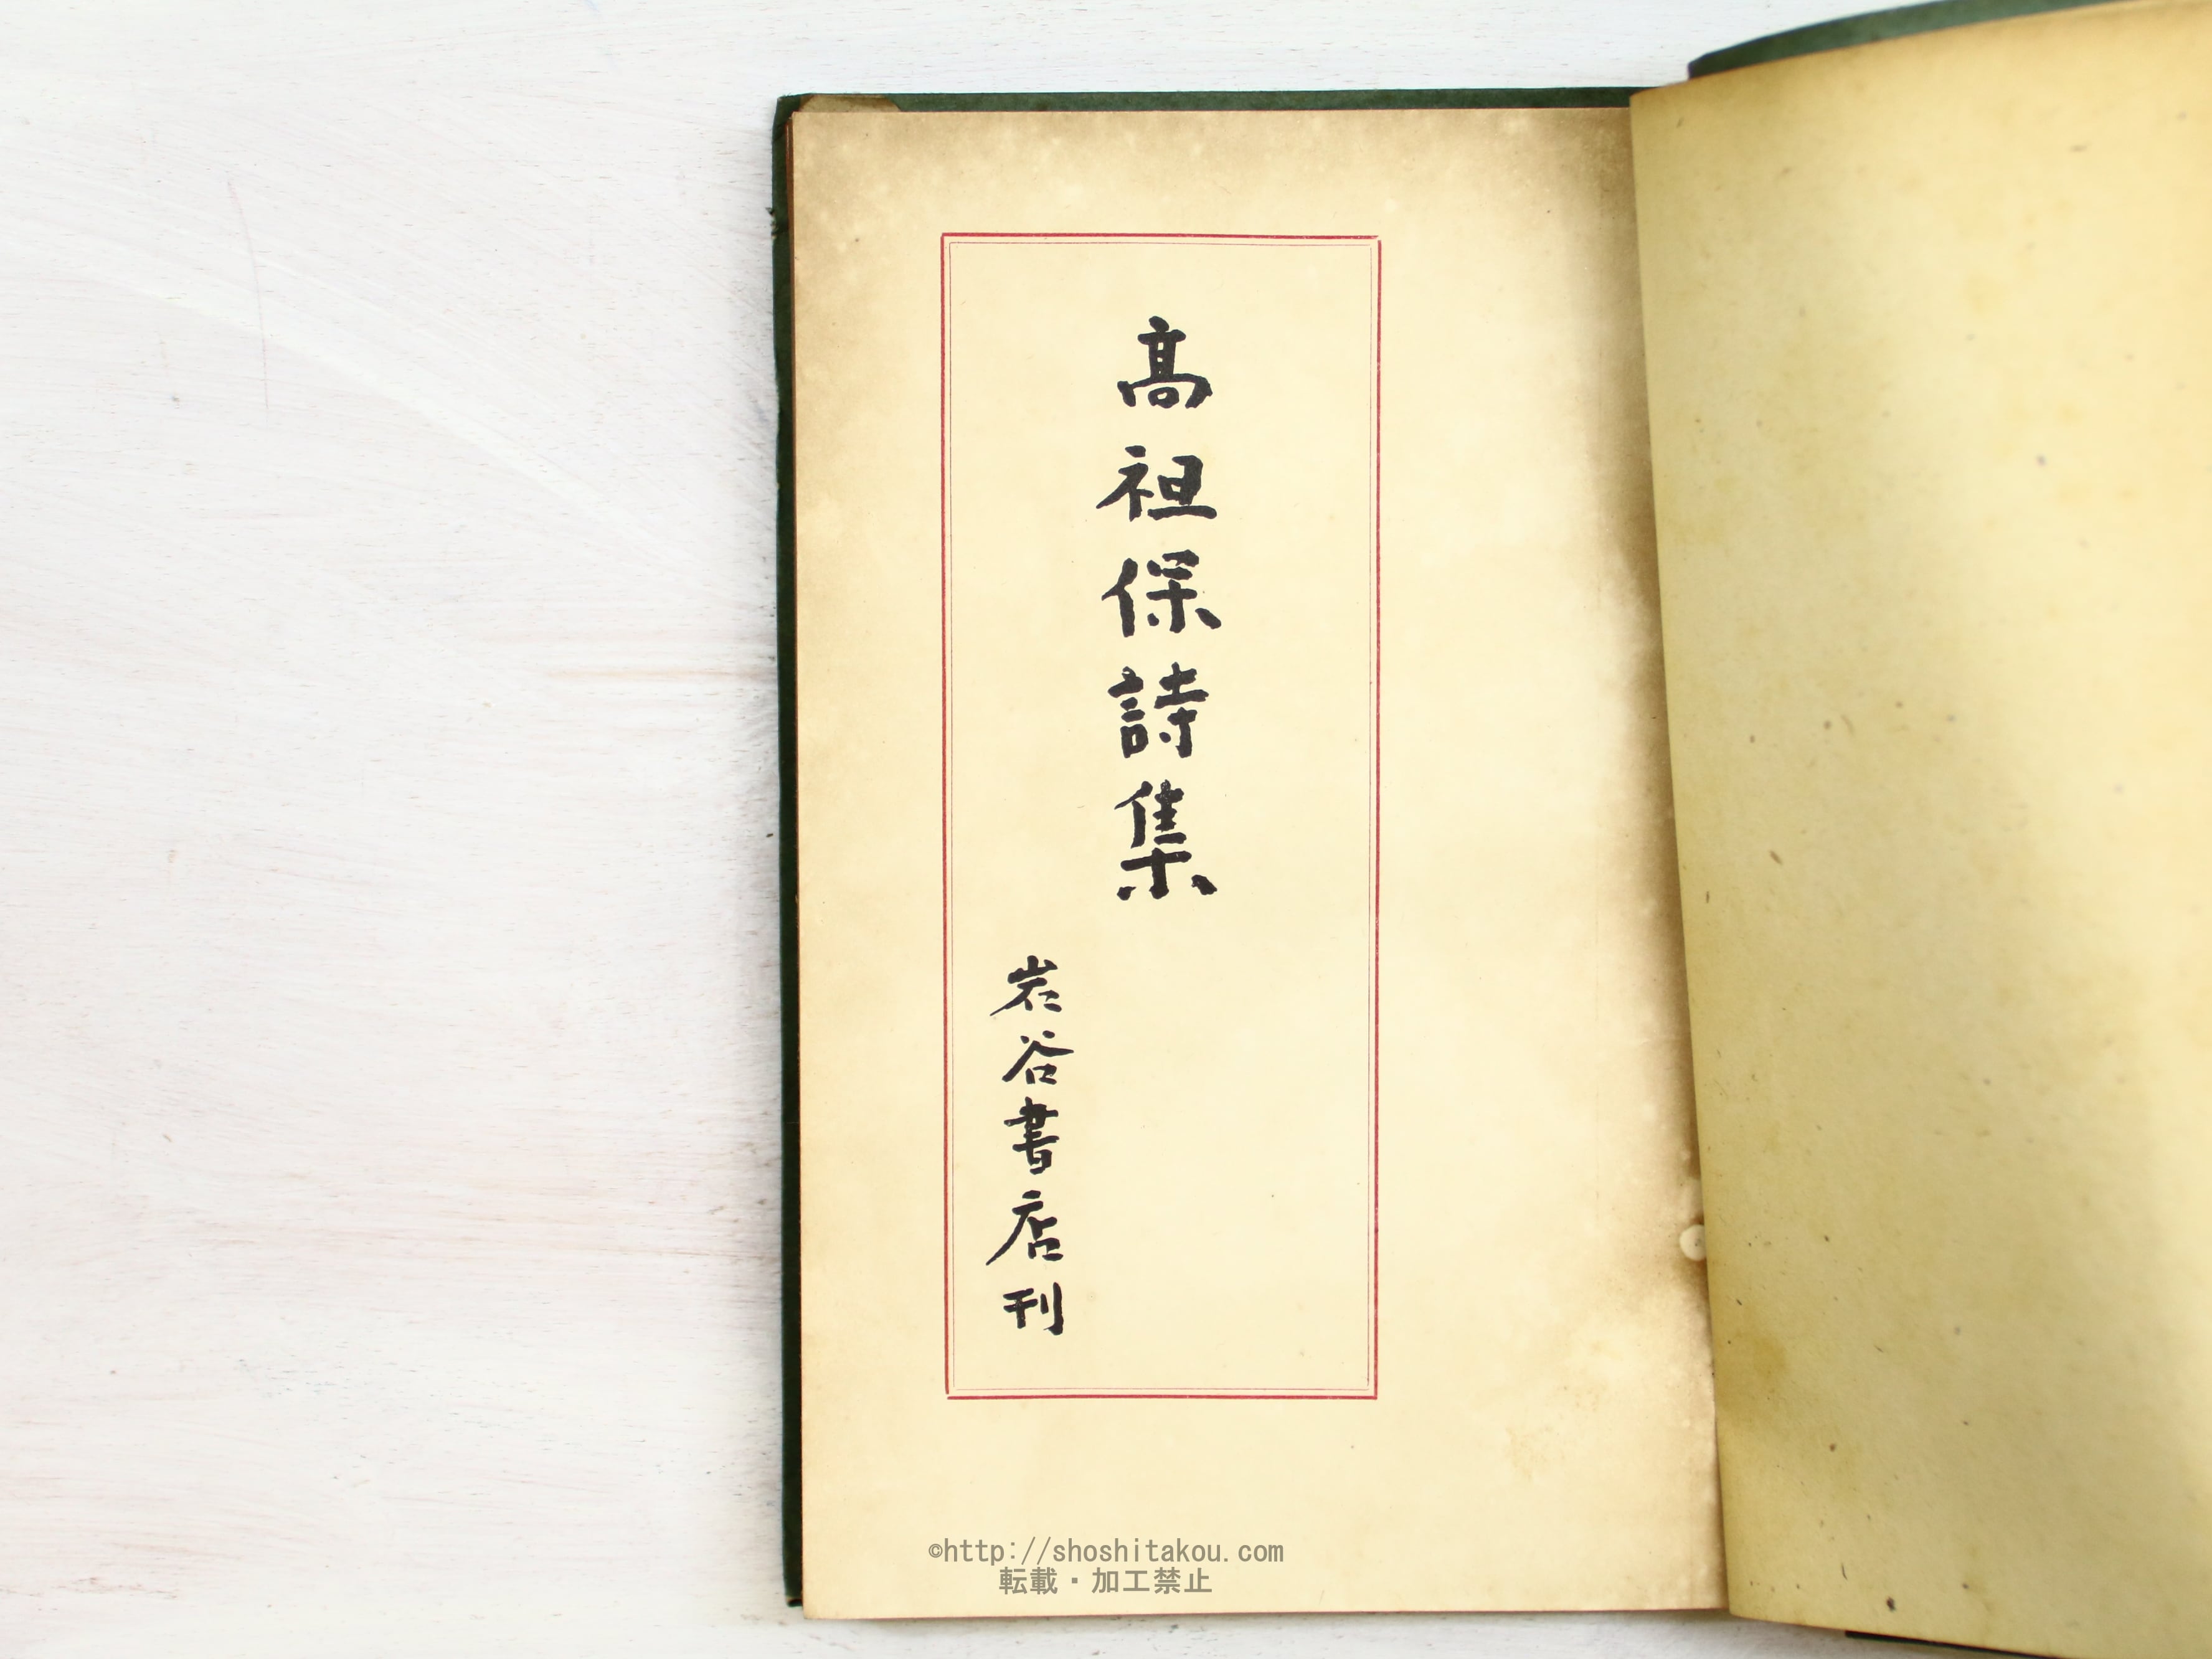 髙祖保詩集
岩谷書店刊
©http://shoshitakou.com
転載・加工禁止